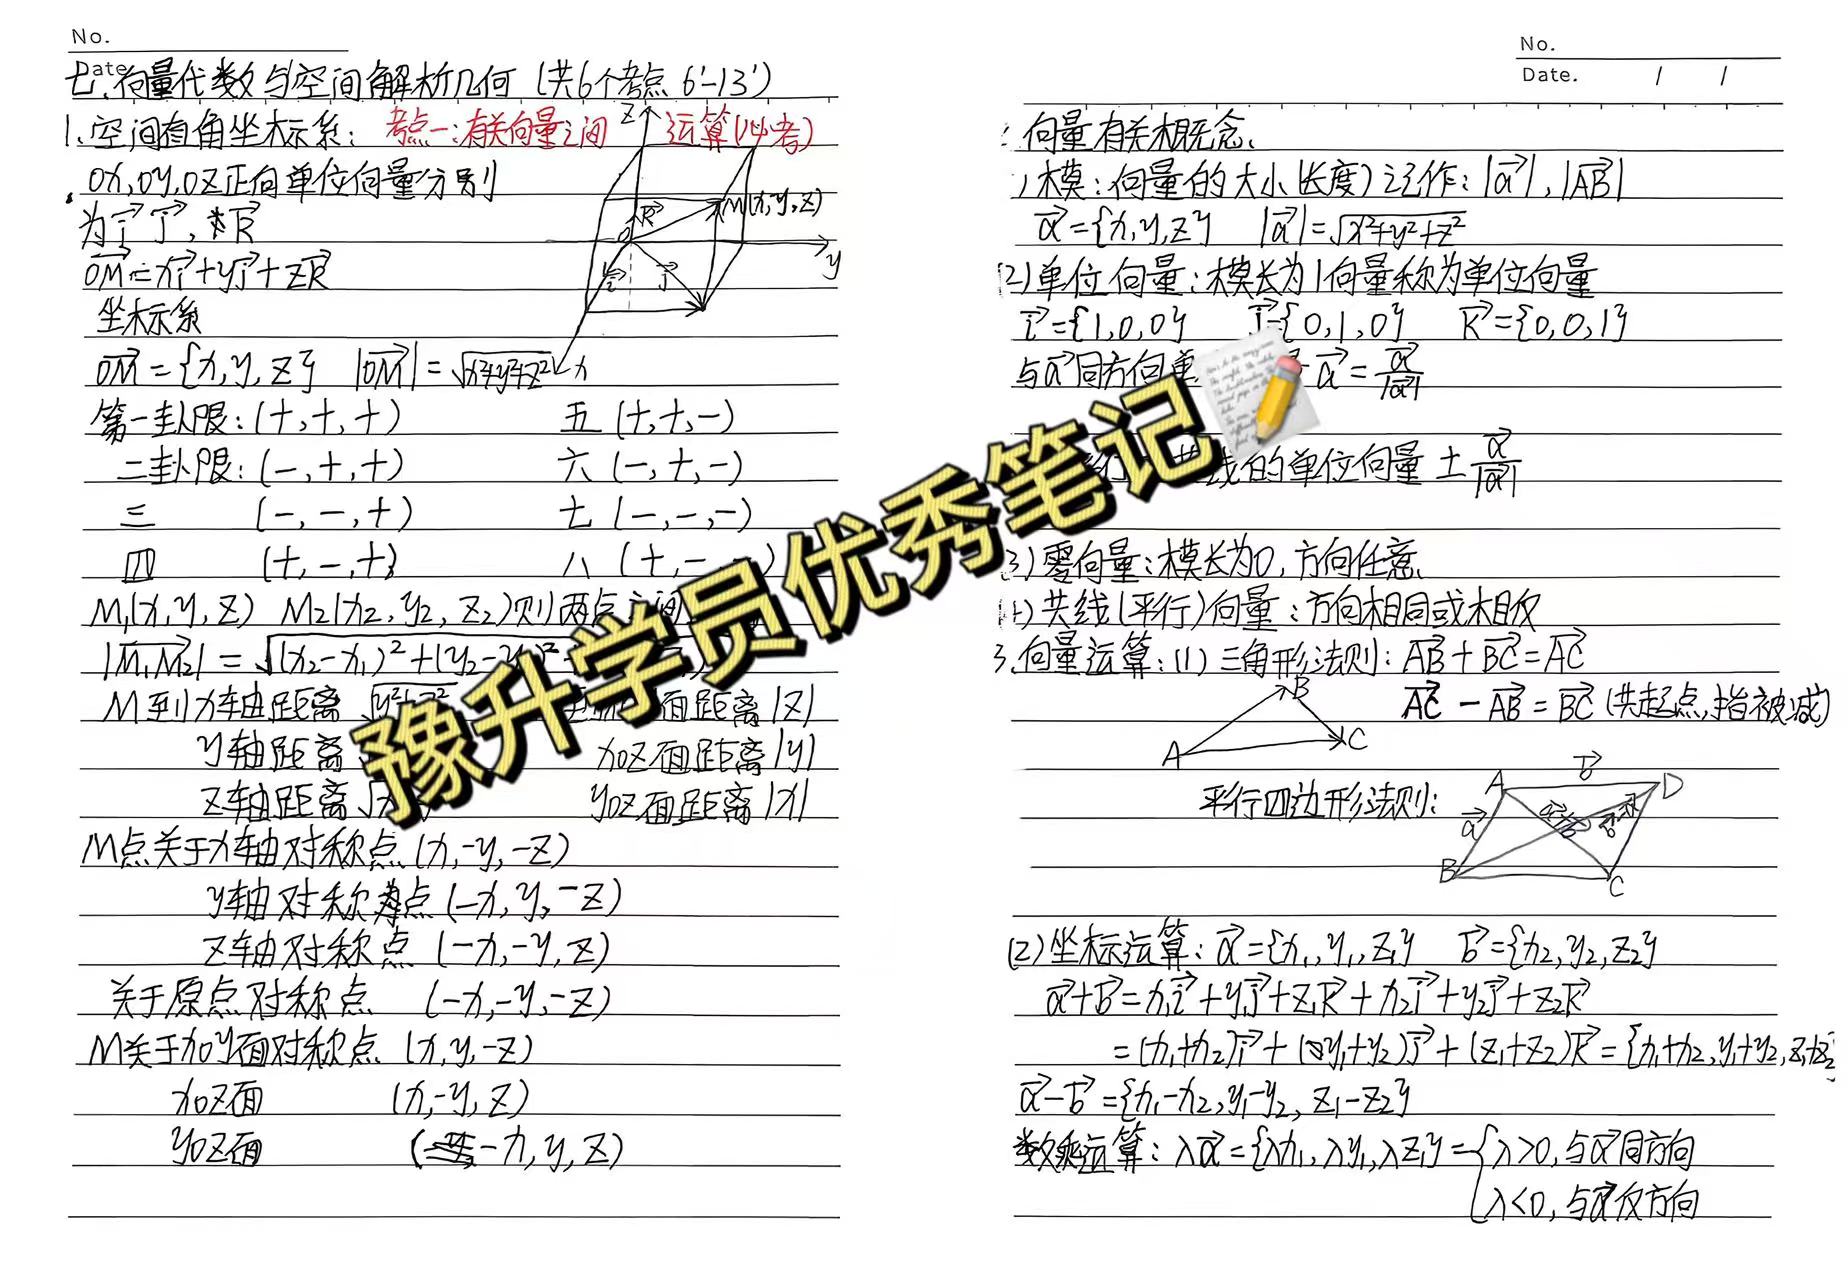 No.
Date
七.向量代数与空间解析几何（共6个考点 6'-13'）
1.空间直角坐标系： 考点一:有关向量之间 运算(必考)
ox,oy,oz正向单位向量分别
为i⃗ j⃗, k⃗
OM⃗ = xi⃗+yj⃗+zk⃗
坐标系
z
M(x,y,z)
k⃗
o
y
i⃗
j⃗
x
OM⃗ = {x,y,z} |OM⃗| = √(x²+y²+z²)
第一卦限：(+,+,+) 五 (+,+,-)
二卦限：(-,+,+) 六 (-,+,-)
三 (-,-,+) 七 (-,-,-)
四 (+,-,+) 八 (+,-, )
M₁(x,y,z) M₂(x₂,y₂,z₂)则两点之间
|M₁M₂⃗| = √(x₂-x₁)²+(y₂-y₁)²
M到x轴距离 √(y²+z²) 面距离|z|
y轴距离 xoz面距离|y|
z轴距离 yoz面距离|x|
M点关于x轴对称点(x,-y,-z)
y轴对称点(-x,y,-z)
z轴对称点 (-x,-y,z)
关于原点对称点 (-x,-y,-z)
M关于xoy面对称点 (x,y,-z)
xoz面 (x,-y,z)
yoz面 (-x,y,z)
豫升学员优秀笔记
No.
Date. / /
向量有关概念.
)模：向量的大小(长度)记作：|a⃗|,|AB⃗|
a⃗={x,y,z} |a⃗|=√(x²+y²+z²)
(2)单位向量：模长为1向量称为单位向量
i⃗={1,0,0} j⃗={0,1,0} k⃗={0,0,1}
与a⃗同方向单 a⃗ = a⃗/|a⃗|
线的单位向量 ± a⃗/|a⃗|
(3)零向量：模长为0,方向任意.
(4)共线(平行)向量：方向相同或相反
3.向量运算：(1)三角形法则：AB⃗+BC⃗=AC⃗
AC⃗ - AB⃗ = BC⃗ (共起点,指被减)
A
B
C
平行四边形法则：
A
b⃗
D
a⃗
B
C
(2)坐标运算：a⃗={x₁,y₁,z₁} b⃗={x₂,y₂,z₂}
a⃗+b⃗=x₁i⃗+y₁j⃗+z₁k⃗+x₂i⃗+y₂j⃗+z₂k⃗
=(x₁+x₂)i⃗+(y₁+y₂)j⃗+(z₁+z₂)k⃗={x₁+x₂,y₁+y₂,z₁+z₂
a⃗-b⃗={x₁-x₂,y₁-y₂,z₁-z₂}
数乘运算：λa⃗={λx₁,λy₁,λz₁}={λ>0,与a⃗同方向
λ<0,与a⃗反方向